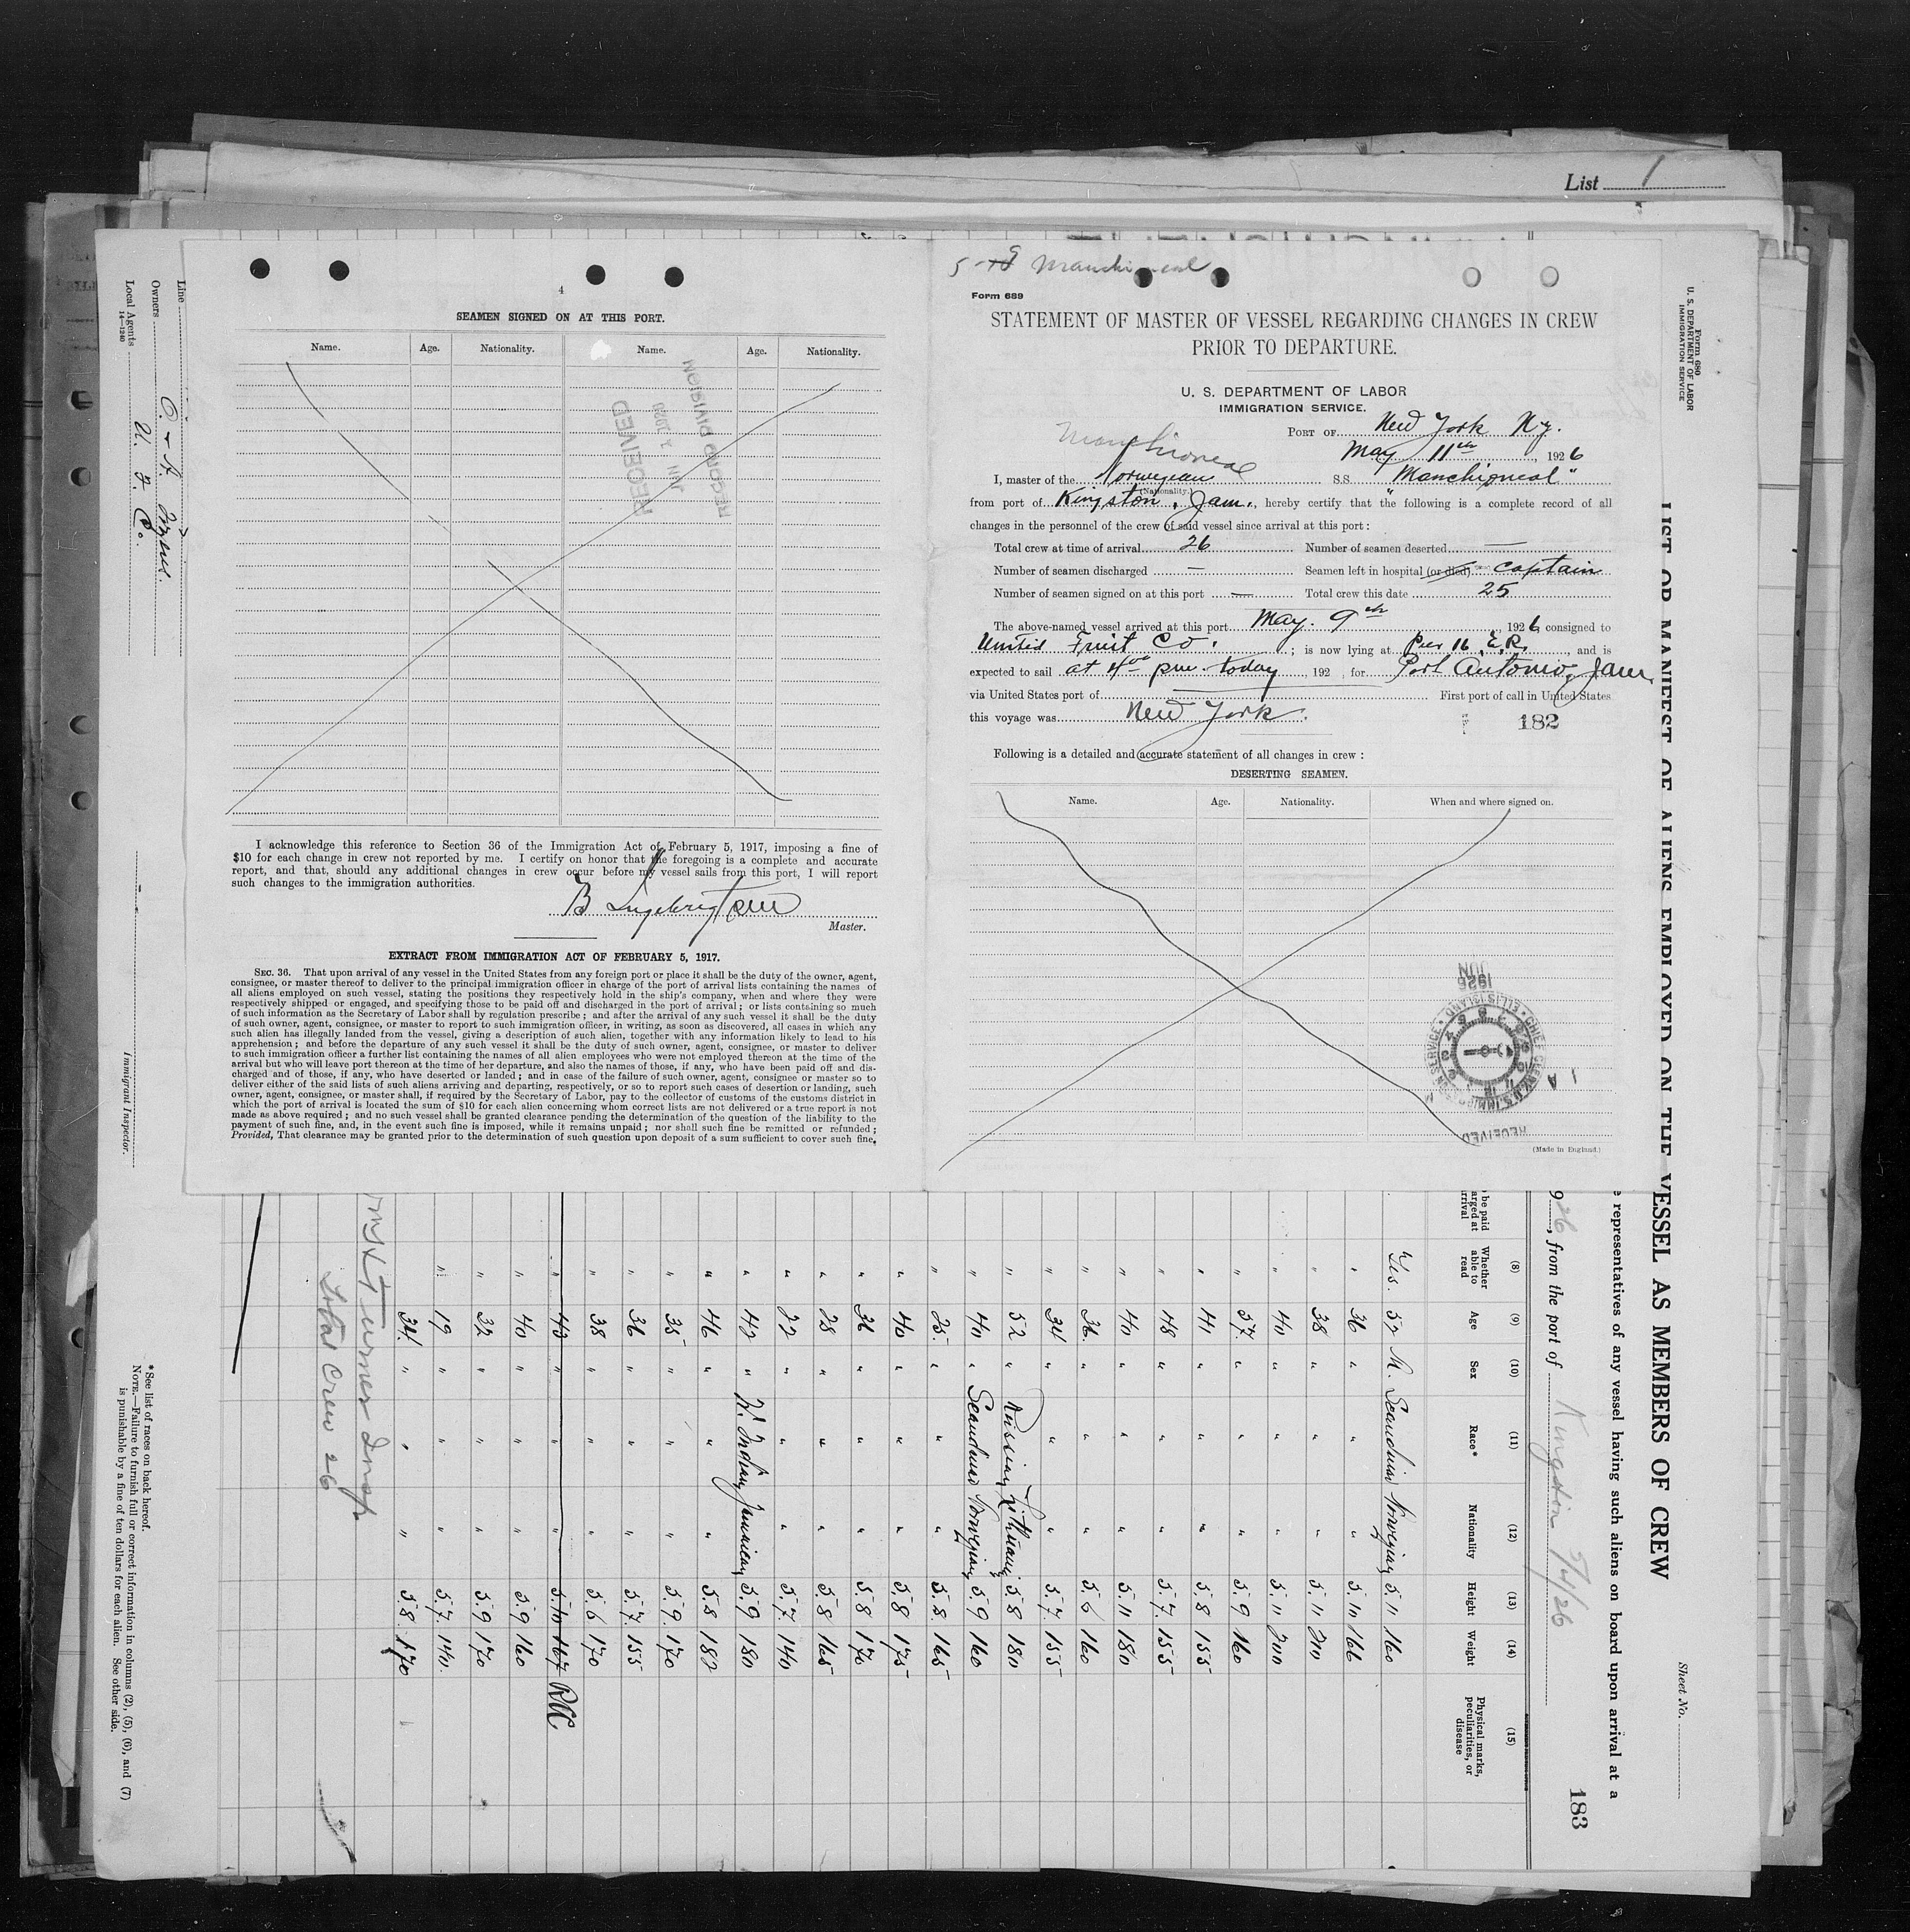 List 1
5-9 Manchioneal
Form 689
STATEMENT OF MASTER OF VESSEL REGARDING CHANGES IN CREW
PRIOR TO DEPARTURE.
U. S. DEPARTMENT OF LABOR
IMMIGRATION SERVICE.
Manchioneal
PORT OF New York N.y.
May 11th, 1926
I, master of the Norwegian S.S. "Manchioneal"
(Nationality.)
from port of Kingston, Jam., hereby certify that the following is a complete record of all
changes in the personnel of the crew of said vessel since arrival at this port:
Total crew at time of arrival 26 Number of seamen deserted —
Number of seamen discharged — Seamen left in hospital (or died) - Captain
Number of seamen signed on at this port — Total crew this date 25
The above-named vessel arrived at this port May. 9th, 1926, consigned to
United Fruit Co. ; is now lying at Pier 16 E.R., and is
expected to sail at 4oo pm. today, 192 , for Port Antonio, Jam.
via United States port of First port of call in United States
this voyage was New York.
182
Following is a detailed and accurate statement of all changes in crew :
DESERTING SEAMEN.
Name. Age. Nationality. When and where signed on.
JUN
1926
RECEIVED
(Made in England.)
4
SEAMEN SIGNED ON AT THIS PORT.
Name. Age. Nationality. Name. Age. Nationality.
RECEIVED
RECORD DIVISION
I acknowledge this reference to Section 36 of the Immigration Act of February 5, 1917, imposing a fine of
$10 for each change in crew not reported by me. I certify on honor that the foregoing is a complete and accurate
report, and that, should any additional changes in crew occur before my vessel sails from this port, I will report
such changes to the immigration authorities.
B Ingebrigtsen
Master.
EXTRACT FROM IMMIGRATION ACT OF FEBRUARY 5, 1917.
SEC. 36. That upon arrival of any vessel in the United States from any foreign port or place it shall be the duty of the owner, agent,
consignee, or master thereof to deliver to the principal immigration officer in charge of the port of arrival lists containing the names of
all aliens employed on such vessel, stating the positions they respectively hold in the ship's company, when and where they were
respectively shipped or engaged, and specifying those to be paid off and discharged in the port of arrival; or lists containing so much
of such information as the Secretary of Labor shall by regulation prescribe; and after the arrival of any such vessel it shall be the duty
of such owner, agent, consignee, or master to report to such immigration officer, in writing, as soon as discovered, all cases in which any
such alien has illegally landed from the vessel, giving a description of such alien, together with any information likely to lead to his
apprehension; and before the departure of any such vessel it shall be the duty of such owner, agent, consignee, or master to deliver
to such immigration officer a further list containing the names of all alien employees who were not employed thereon at the time of the
arrival but who will leave port thereon at the time of her departure, and also the names of those, if any, who have been paid off and dis-
charged and of those, if any, who have deserted or landed; and in case of the failure of such owner, agent, consignee or master so to
deliver either of the said lists of such aliens arriving and departing, respectively, or so to report such cases of desertion or landing, such
owner, agent, consignee, or master shall, if required by the Secretary of Labor, pay to the collector of customs of the customs district in
which the port of arrival is located the sum of $10 for each alien concerning whom correct lists are not delivered or a true report is not
made as above required; and no such vessel shall be granted clearance pending the determination of the question of the liability to the
payment of such fine, and, in the event such fine is imposed, while it remains unpaid; nor shall such fine be remitted or refunded;
Provided, That clearance may be granted prior to the determination of such question upon deposit of a sum sufficient to cover such fine,
Form 680
U. S. DEPARTMENT OF LABOR
IMMIGRATION SERVICE
Sheet No.
LIST OR MANIFEST OF ALIENS EMPLOYED ON THE VESSEL AS MEMBERS OF CREW
representatives of any vessel having such aliens on board upon arrival at a
926, from the port of Kingston 5/4/26
183
(8) (9) (10) (11) (12) (13) (14) (15)
Whether able to read Age Sex Race* Nationality Height Weight Physical marks, peculiarities, or disease
Yes. 52 M. Scandinav Norwegian 5.11 160
" 36 " " " 5.10 166
" 38 " " " 5.11 200
" 40 " " " 5.11 200
" 37. " " " 5.9 160
" 41 " " " 5.8 155
" 48 " " " 5.7. 155
" 40 " " " 5.11 180
" 36. " " " 5.6 160
" 34 " " " 5.7. 155
" 52 " Russian Lithuania 5.8 180
" 40 " Scandinav Norwegian 5.9 160
" 25. " " " 5.8. 165
" 40 " " " 5.8 175
" 36 " " " 5.8 170
" 28 " " " 5.8 165
" 22 " " " 5.7. 140
" 42 " W. Indian Jamaican 5.9 180
" 46 " " " 5.8 182
" 35 " " " 5.9. 170
" 36 " " " 5.7. 155
" 38 " " " 5.6 170
" 43 " " " 5.10 167
" 40 " " " 5.9 160
" 32 " " " 5.9 170
" 19 " " " 5.7. 140.
34. " " " 5.8. 170
Turner Insp
Total Crew 26
*See list of races on back hereof.
NOTE.—Failure to furnish full or correct information in columns (2), (5), (6), and (7)
is punishable by a fine of ten dollars for each alien. See other side.
Line
Owners
Local Agents U. F. Co.
14—1240
Immigrant Inspector.